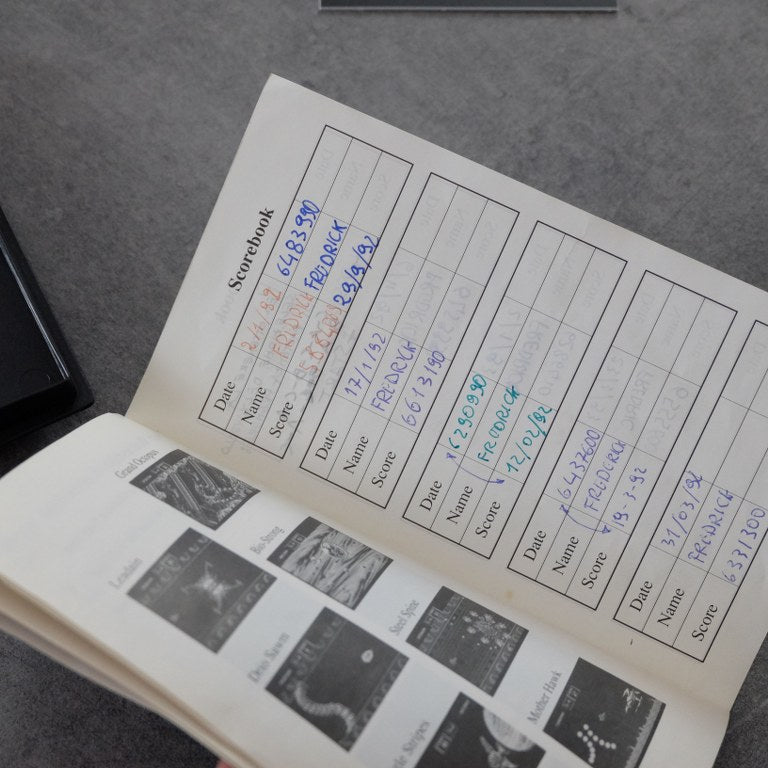 Scorebook
Date 2/1/92 6483990
Name FREDRICK FREDRICK
Score 29/9/92
Date 17/1/92
Name FREDRICK
Score 6613190
Date 6290990
Name FREDRICK
Score 12/02/92
Date 6437600
Name FREDERICK
Score 19-3-92
Date 31/03/92
Name FREDRICK
Score 6331300
Grand Octopus
Leviathan
Bio-Strong
Dino Sawm
Steel Spice
Stripes
Mother Hawk